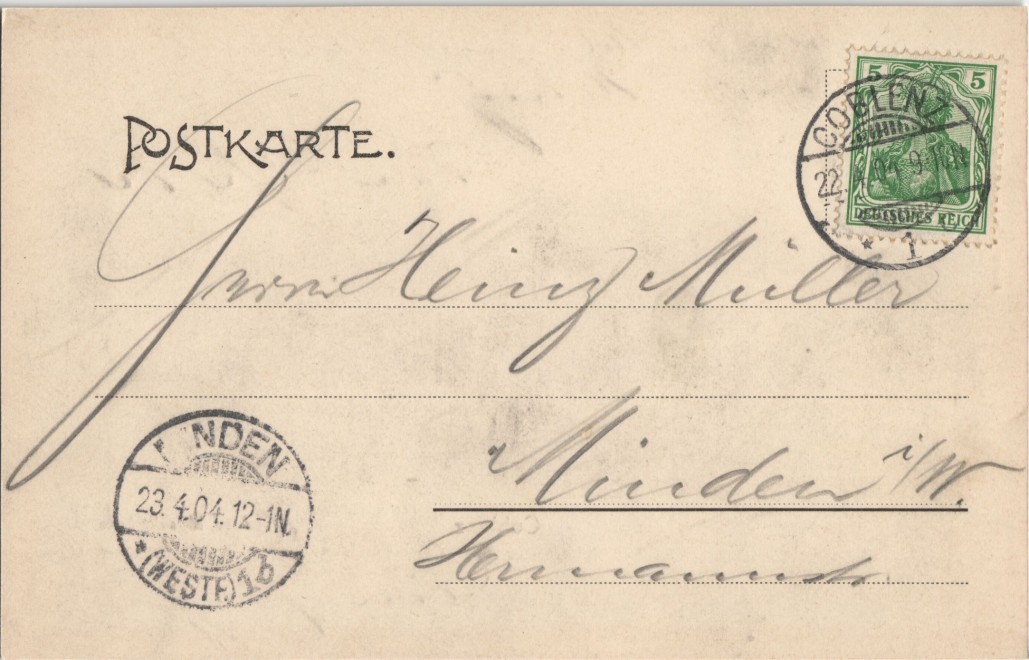 POSTKARTE.
5 5
DEUTSCHES REICH
COBLENZ
22.4.04. 9-10N
* * 1
Herrn Heinz Müller
Minden i/W.
Hermannstr.
MINDEN
23.4.04. 12-1N.
* (WESTF.) 1 b